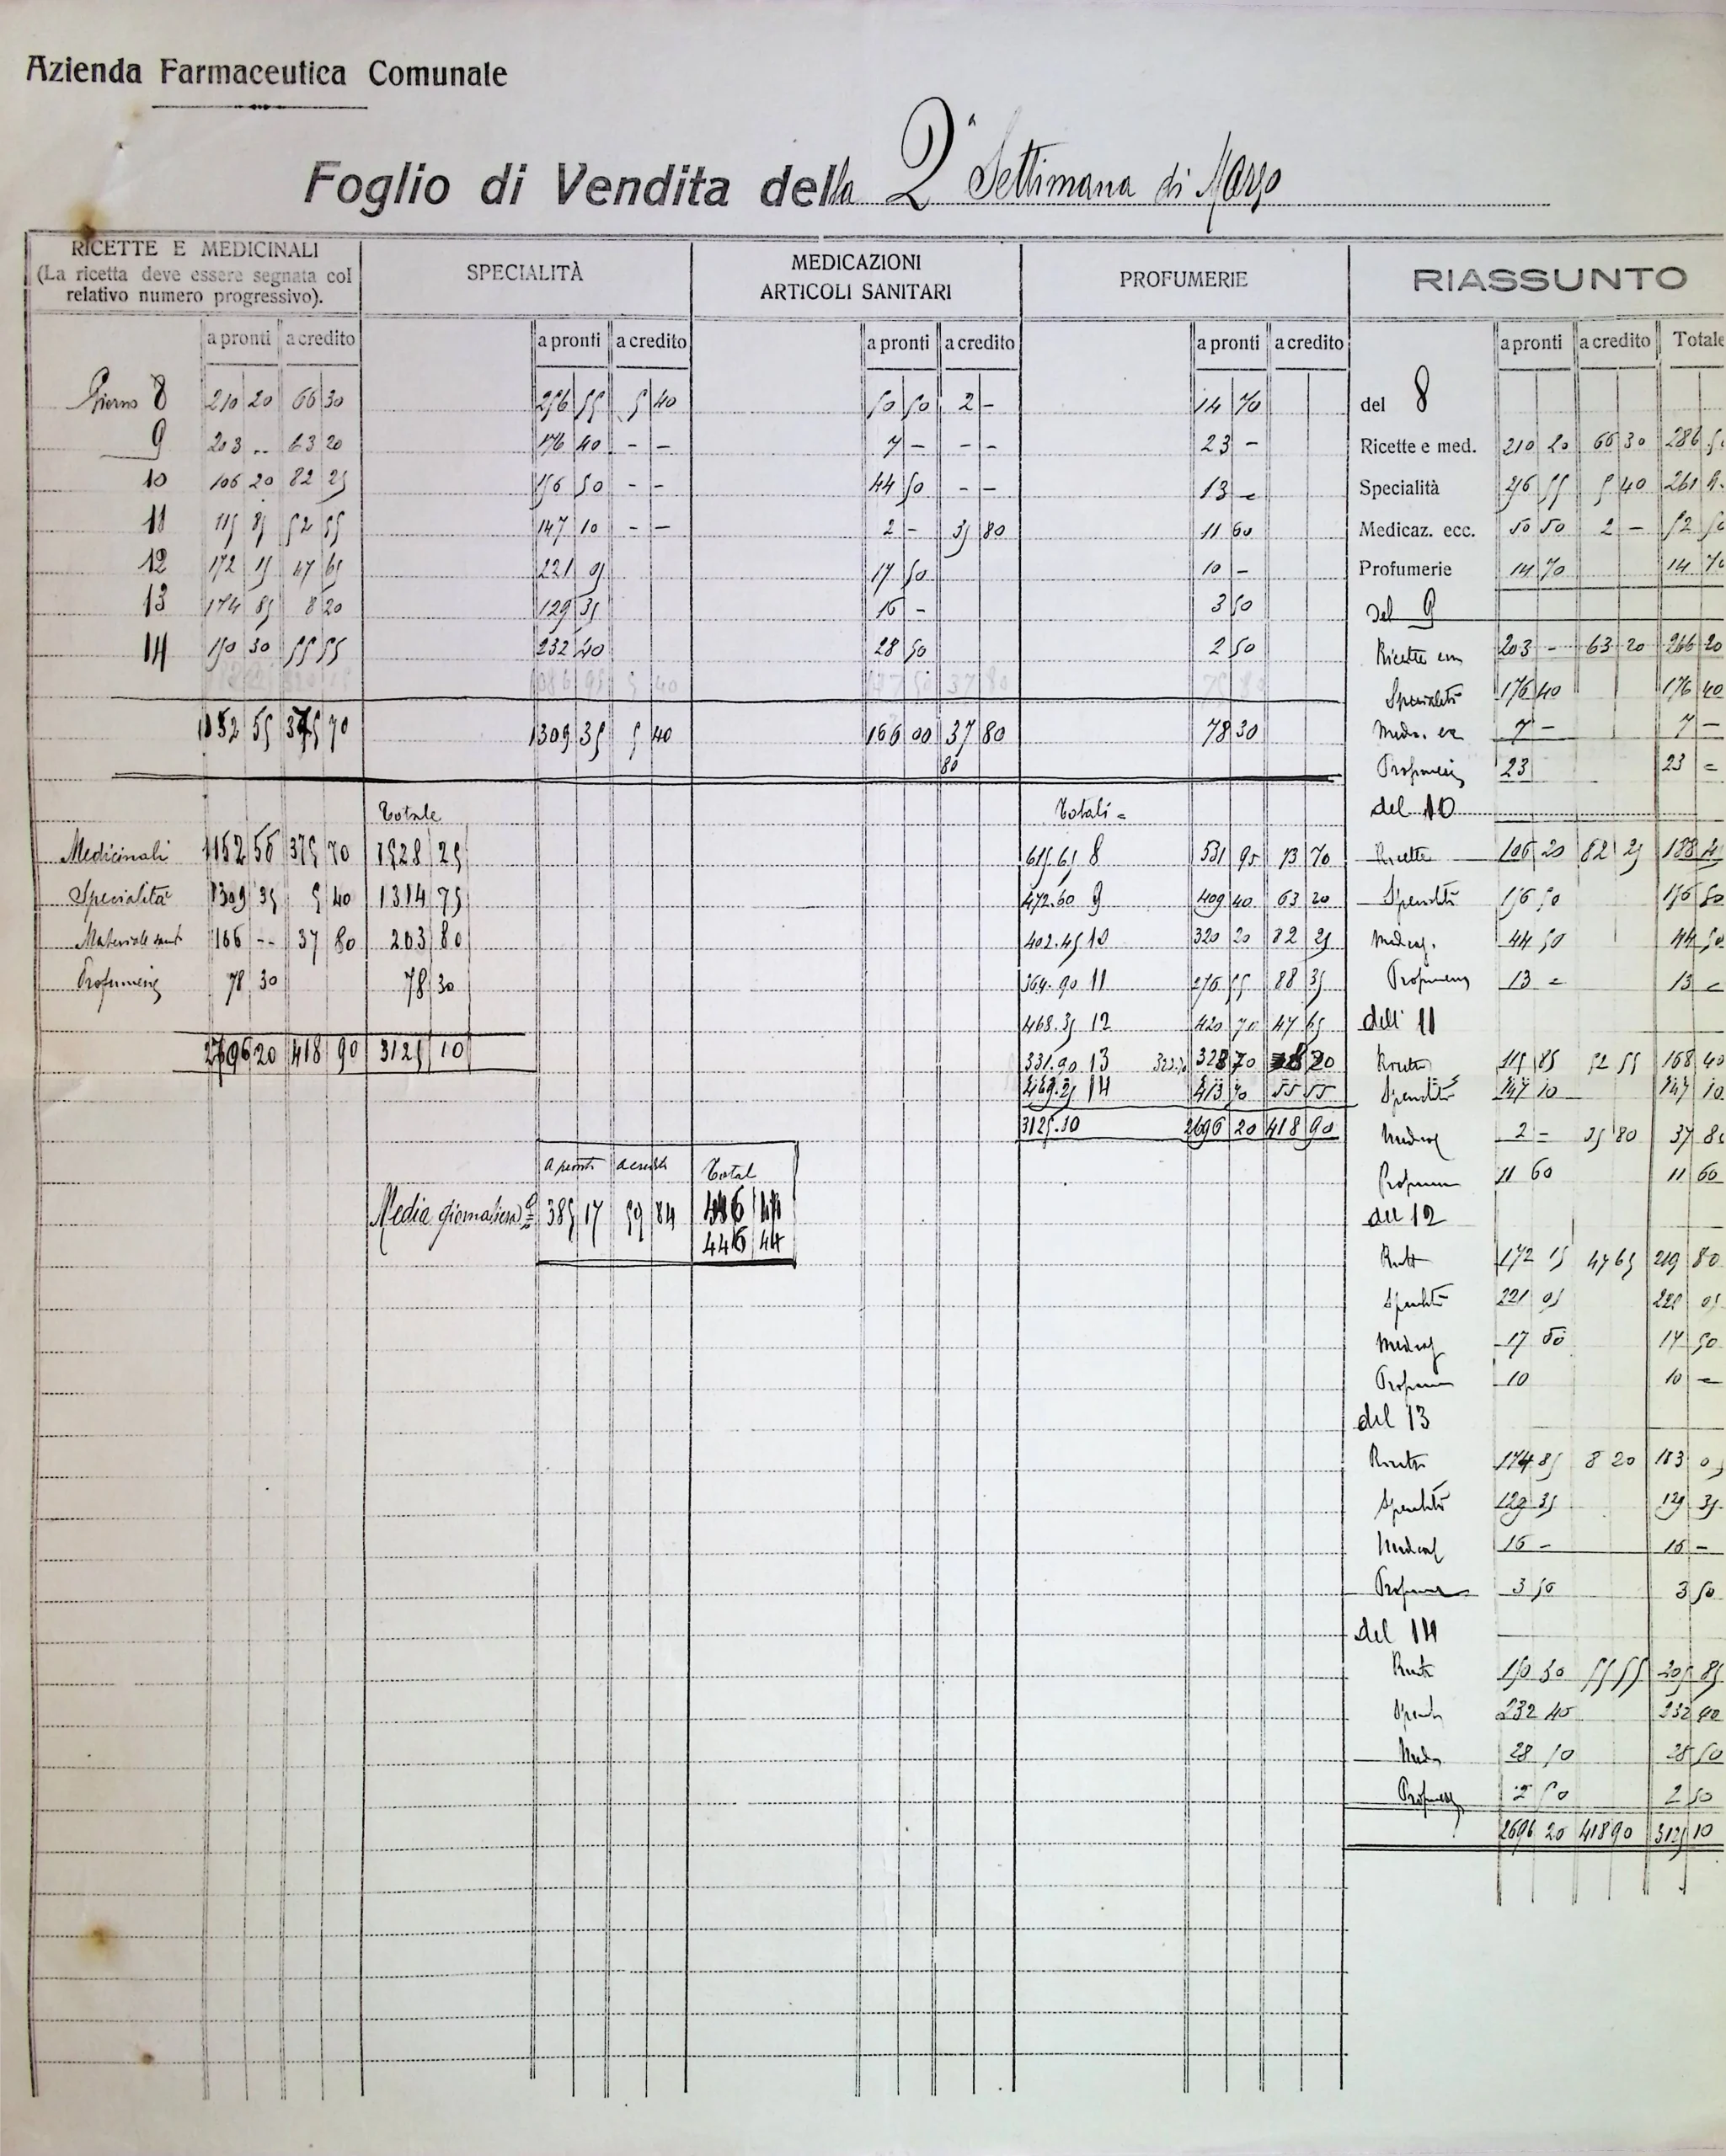 Azienda Farmaceutica Comunale
Foglio di Vendita della 2ª Settimana di Marzo
RICETTE E MEDICINALI
(La ricetta deve essere segnata col
relativo numero progressivo).
SPECIALITÀ
MEDICAZIONI
ARTICOLI SANITARI
PROFUMERIE
RIASSUNTO
a pronti a credito a pronti a credito a pronti a credito a pronti a credito a pronti a credito Totale
Giorno 8 210 20 66 30 256 55 5 40 50 50 2 - 14 70 del 8
9 203 .. 63 20 176 40 - - 7 - - - 23 - Ricette e med. 210 20 66 30
10 106 20 82 25 156 50 - - 44 50 - - 13 - Specialità 256 55 5 40
11 115 85 52 55 147 10 - - 2 - 35 80 11 60 Medicaz. ecc. 50 50 2 -
12 172 15 47 65 221 95 17 50 10 - Profumerie 14 70 14 70
13 174 85 8 20 129 35 16 - 3 50 del 9
14 150 30 55 55 232 40 28 50 2 50 203 - 63 20 266 20
Specialità 176 40 176 40
1152 55 375 70 1309 35 5 40 166 00 37 80 78 30 7 - 7 -
80 23 23 =
Totale Totali = del 10
Medicinali 1152 55 375 70 1528 25 8 531 95 73 70 Ricette 106 20 82 25 188 45
Specialità 1309 35 5 40 1314 75 472.60 9 409 40 63 20 156 50 156 50
166 -- 37 80 203 80 402.45 10 320 20 82 25 44 50 44 50
78 30 78 30 364.90 11 276 55 88 35 13 = 13 =
468.35 12 420 70 47 65 dell' 11
2696 20 418 90 3125 10 331.90 13 323 70 8 20 115 85 52 55 168 40
469.25 14 413 70 55 55 147 10 147 10
3125.10 2696 20 418 90 2 = 35 80 37 80
a pronti a credito Total 11 60 11 60
Media giornaliera 385 17 59 84 446 44 del 12
446 44
172 15 47 65 219 80
221 05 221 05
17 50 17 50
10 10 =
del 13
174 85 8 20 183 05
129 35 129 35
16 - 16 -
3 50 3 50
del 14
150 30 55 55 205 85
232 40 232 40
28 50 28 50
2 50 2 50
2696 20 418 90 3125 10